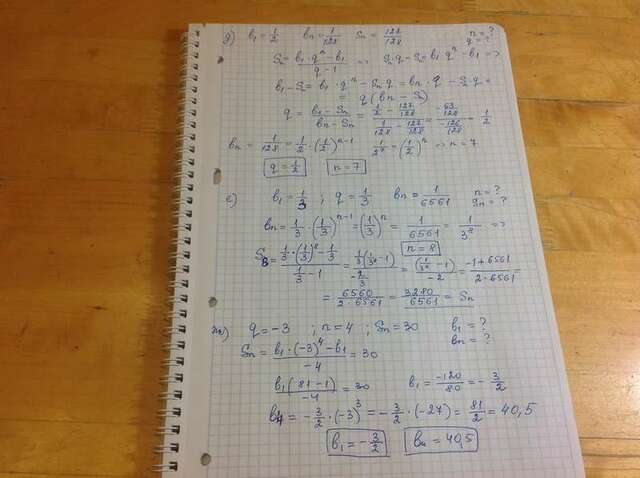 д) b₁ = 1/2 bₙ = 1/128 Sₙ = 127/128 n = ? q = ?
Sₙ = (b₁ · qⁿ - b₁)/(q - 1) => Sₙq - Sₙ = b₁qⁿ - b₁ =>
b₁ - Sₙ = b₁ · qⁿ - Sₙq = bₙ · q - Sₙq =
= q(bₙ - Sₙ)
q = (b₁ - Sₙ)/(bₙ - Sₙ) = (1/2 - 127/128)/(1/128 - 127/128) = (-63/128)/(-126/128) = 1/2
bₙ = 1/128 = 1/2 · (1/2)ⁿ⁻¹ 1/2⁷ = (1/2)ⁿ => n = 7
q = 1/2 n = 7
е) b₁ = 1/3 ; q = 1/3 bₙ = 1/6561 n = ? Sₙ = ?
bₙ = 1/3 · (1/3)ⁿ⁻¹ = (1/3)ⁿ = 1/6561 = 1/3⁸ =>
n = 8
S₈ = (1/3 · (1/3)⁸ - 1/3)/(1/3 - 1) = (1/3(1/3⁸ - 1))/(-2/3) = (1/3⁸ - 1)/(-2) = (-1 + 6561)/(2 · 6561) =
= 6560/(2 · 6561) = 3280/6561 = Sₙ
ж) q = -3 ; n = 4 ; Sₙ = 30 b₁ = ? bₙ = ?
Sₙ = (b₁ · (-3)⁴ - b₁)/(-4) = 30
b₁(81 - 1)/(-4) = 30 b₁ = -120/80 = -3/2
b₄ = -3/2 · (-3)³ = -3/2 · (-27) = 81/2 = 40,5
b₁ = -3/2 bₙ = 40,5